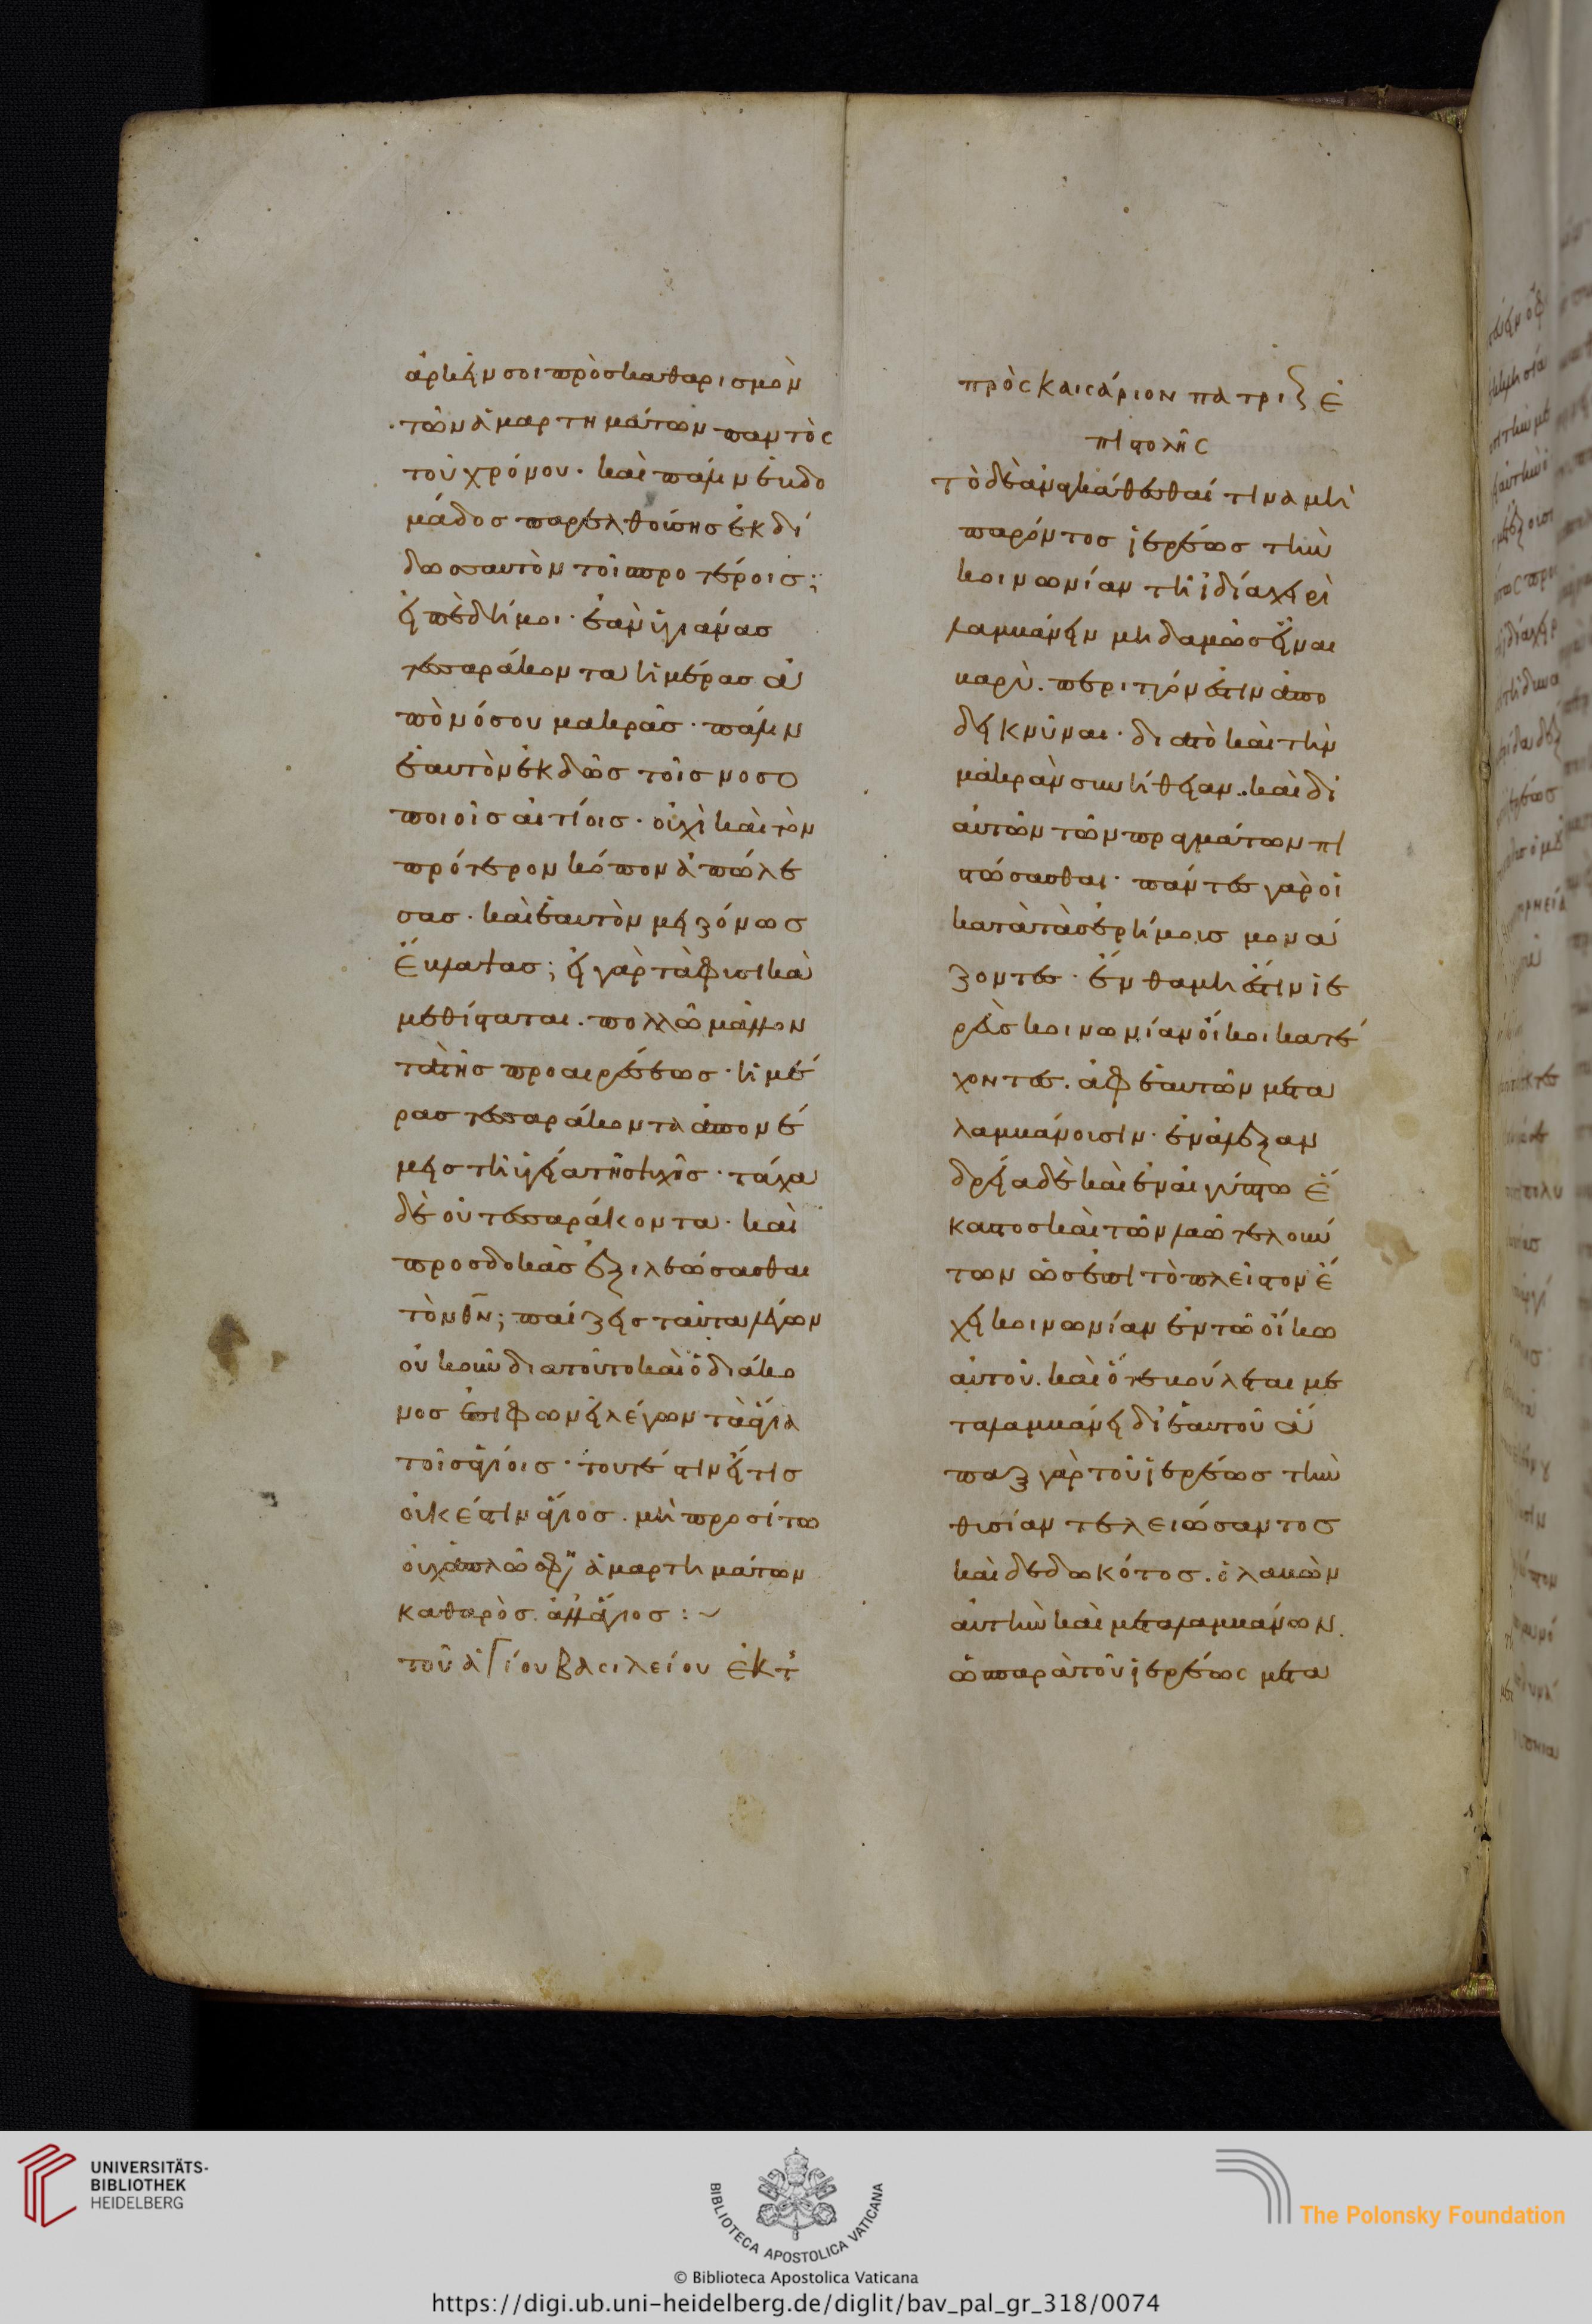 ἀρκεῖν σοι πρὸς καθαρισμὸν
τῶν ἁμαρτημάτων παντὸς
τοῦ χρόνου· καὶ πάλιν ἑβδο
μάδος παρελθούσης ἐκδί
δως σαυτὸν τοῖ προτέροις;
εἰπὲ δή μοι· ἐὰν ὑγιάνας
τεσσαράκοντα ἡμέρας ἀ
πὸ νόσου μακρᾶς· πάλιν
ἑαυτὸν ἐκδῶς τοῖς νοσο
ποιοῖς αἰτίοις· οὐχὶ καὶ τὸν
πρότερον κόπον ἀπώλε
σας· καὶ ἑαυτὸν μειζόνως
ἔβλαψας; εἰ γὰρ τὰ φυσικὰ
μεθίσταται. πολλῶ μᾶλλον
τὰ τῆς προαιρέσεως· ἡμέ
ρας τεσσαράκοντα ἀπονέ
μεις τῆ ὑγεία τῆς ψυχῆς· τάχα
δὲ οὐ τεσσαράκοντα· καὶ
προσδοκᾶς ἐξιλεώσασθαι
τὸν θν; παίζεις ταῦτα λέγων
οὐκοῦν διατοῦτο καὶ ὁ διάκο
νος ἐπιφωνεῖ λέγων τὰ ἅγια
τοῖς ἁγίοις· τουτέστιν εἴ τις
οὐκ έστιν ἅγιος. μὴ προσίτω
οὐχ ἁπλῶς φη ἁμαρτημάτων
καθαρὸς. ἀλλ' ἅγιος :~
τοῦ ἁγίου βασιλείου ἐκ τ
πρὸς καισάριον πατρι ἐ
πιστολῆς
τὸ δὲ ἀναγκάζεσθαί τινα μὴ
παρόντος ἱερέως τὴν
κοινωνίαν τῆ ἰδία χειρὶ
λαμβάνειν μηδαμῶς εἶναι
βαρὺ. περιττόν ἐστιν ἀπο
δεικνύναι· διατὸ καὶ τὴν
μακρὰν συνήθειαν. καὶ δι
αὐτῶν τῶν πραγμάτων πι
στώσασθαι· πάντες γὰρ οἱ
κατὰ τὰς ἐρήμους μονά
ζοντες· ἔνθα μὴ ἔστιν ἱε
ρεὺς κοινωνίαν οἴκοι κατέ
χοντες. ἀφ' ἑαυτῶν μετα
λαμβάνουσιν· ἐν ἀλεξαν
δρεία δὲ καὶ ἐν αἰγύπτω ἕ
καστος καὶ τῶν λαῶ τελούν
των ὡς ἐπι τὸ πλεῖστον ἔ
χει κοινωνίαν ἐν τῶ οἴκω
αὐτοῦ. καὶ ὅτε βούλεται με
ταλαμβάνει δι' ἑαυτοῦ ἅ
παξ γὰρ τοῦ ἱερέως τὴν
θυσίαν τελειώσαντος
καὶ δεδωκότος. ὁ λαβὼν
αὐτὴν καὶ μεταλαμβάνων.
ὡ παρὰ τοῦ ἱερέως μετα
UNIVERSITÄTS-
BIBLIOTHEK
HEIDELBERG
BIBLIOTECA APOSTOLICA VATICANA
The Polonsky Foundation
© Biblioteca Apostolica Vaticana
https://digi.ub.uni-heidelberg.de/diglit/bav_pal_gr_318/0074